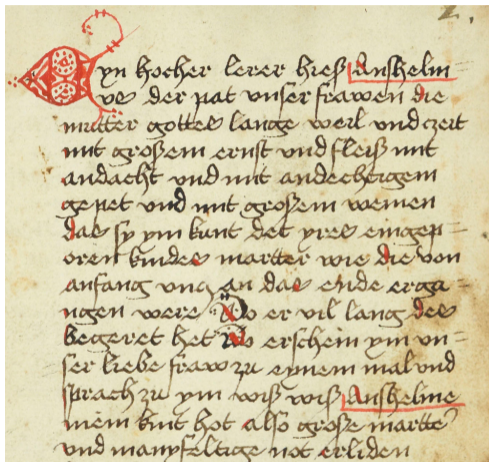 2.
Eyn hocher lerer hieß Anshelm
us der pat unser frawen die
mutter gottes lange weil und czeit
mit großem ernst und fleiß mit
andacht und mit andechtigem
gepet und mit großem weinen
das sy ym kunt det yres eingep=
oren kindes martter wie die von
anfang uncz an das ende erga=
ngen were Do er vil lang des
begeret het Do erschein ym un=
ser liebe fraw zu eynem mal und
sprach zu ym wiß wiß Anshelme
mein kint hot also große martter
und manyfeltige not erliden